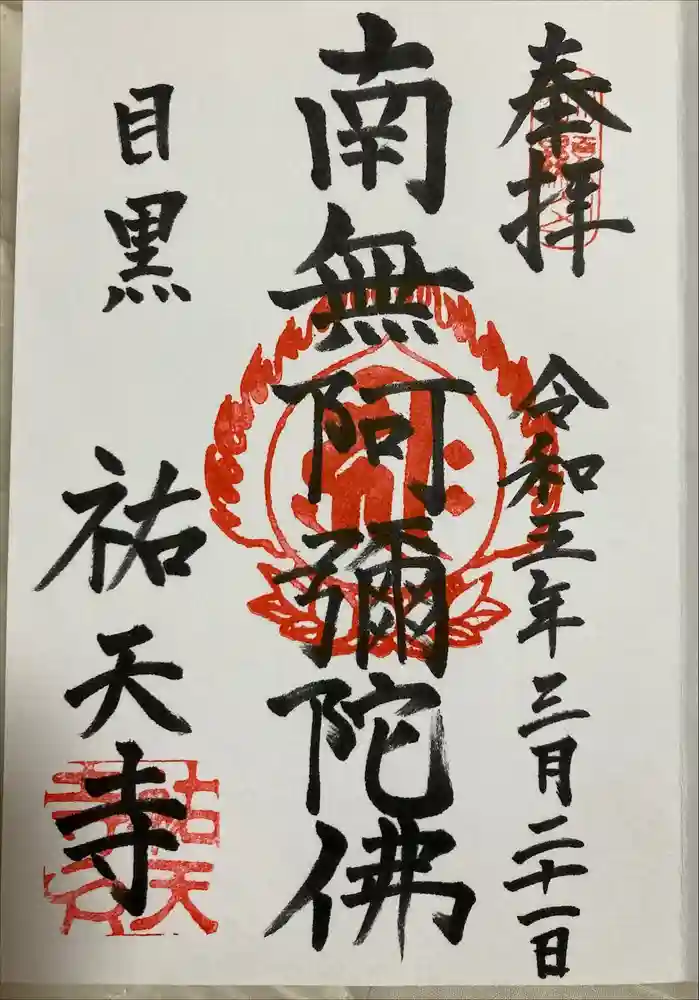 奉拝
令和五年三月二十一日
南無阿彌陀佛
目黒
祐天寺